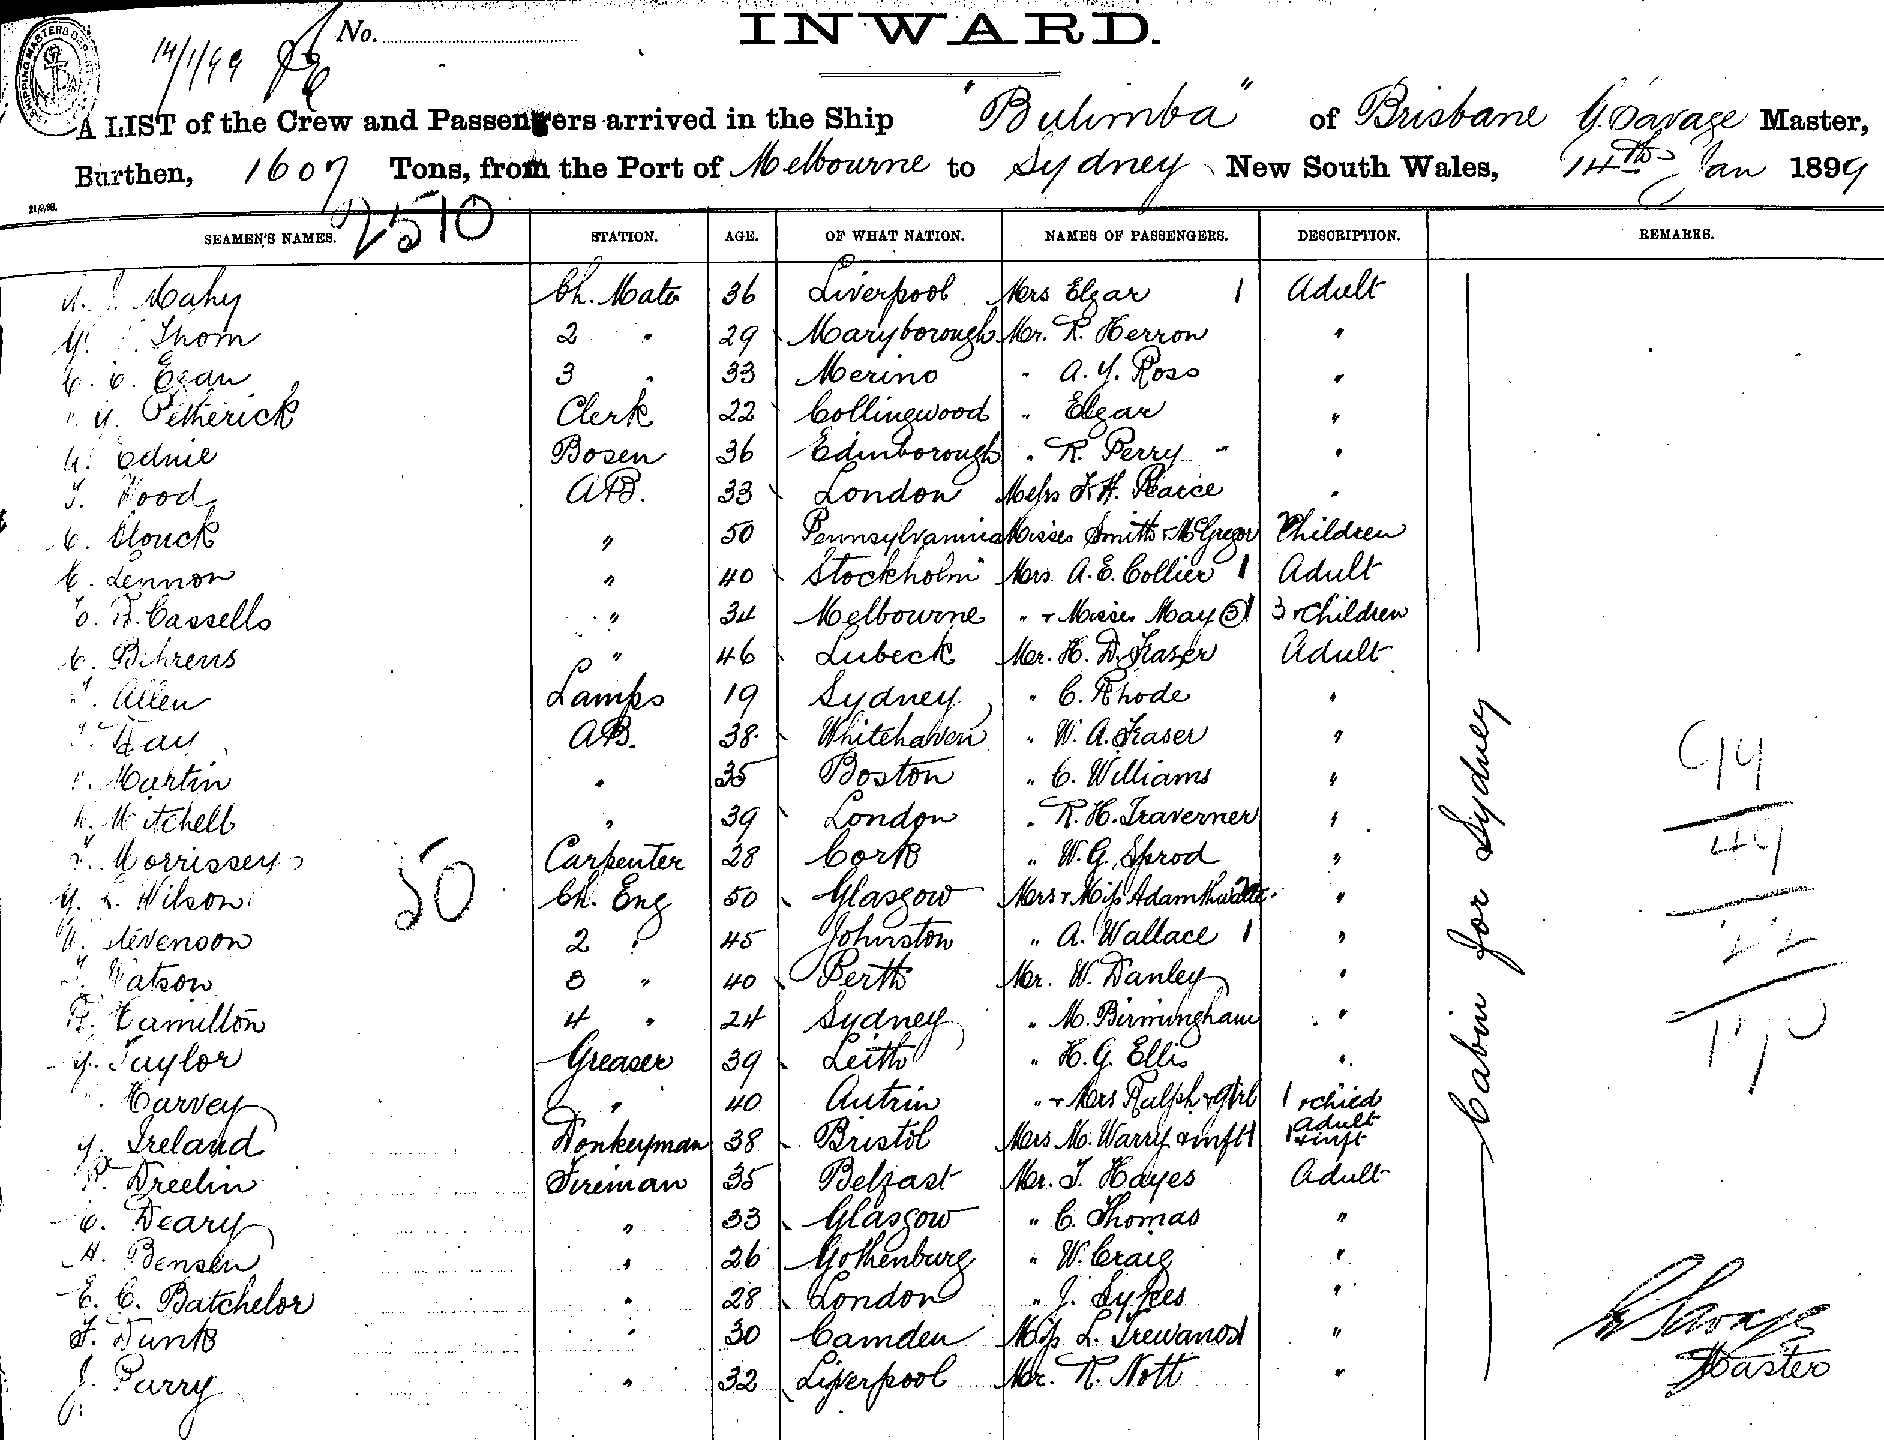 No.
INWARD.
14/1/99
A LIST of the Crew and Passengers arrived in the Ship "Bulimba" of Brisbane G. Savage Master,
Burthen, 1607 Tons, from the Port of Melbourne to Sydney New South Wales, 14th Jan 1899
2510
SEAMEN'S NAMES. STATION. AGE. OF WHAT NATION. NAMES OF PASSENGERS. DESCRIPTION. REMARKS.
Mahy Ch. Mate 36 Liverpool Mrs Elgar 1 Adult
Thom 2 " 29 Maryborough Mr. R. Herron "
Egan 3 " 33 Merino " A. Y. Ross "
Petherick Clerk 22 Collingwood " Elgar "
Ednie Bosen 36 Edinborough " R. Perry "
Wood AB. 33 London Miss F. H. Pearce "
C. Clouck " 50 Pennsylvannia Misses Smith & McGregor Children
C. Lennon " 40 Stockholm Mrs A. E. Collier 1 Adult
Cassells " 34 Melbourne " & Misses May 3 1 3 & Children
C. Behrens " 46 Lubeck Mr. H. D. Fraser Adult
Allen Lamps 19 Sydney " C. Rhode "
Day AB. 38 Whitehaven " W. A. Fraser "
Martin " 35 Boston " C. Williams "
Mitchell " 39 London " R. H. Traverner "
Morrissey Carpenter 28 Cork " W. G. Sprod "
Wilson Ch. Eng 50 Glasgow Mrs & Miss Adamthwaite "
Stevenson 2 " 45 Johnston " A. Wallace 1 "
Watson 3 " 40 Perth Mr. W. Danley "
Hamilton 4 " 24 Sydney " M. Birmingham "
Taylor Greaser 39 Leith " H. G. Ellis "
Harvey " 40 " & Mrs Ralph & Girl 1 & child
Ireland Donkeyman 38 Bristol Mrs M. Warry & inft 1 1 Adult & inft
Dreelin Fireman 35 Belfast Mr. T. Hayes Adult
C. Deary " 33 Glasgow " C. Thomas "
Bensen " 26 Gothenburg " W. Craig "
E. C. Batchelor " 28 London " J. Sykes "
F. Dunk " 30 Camden Miss L. Trewanod "
J. Parry " 32 Liverpool Mr. R. Nott "
50
Cabin for Sydney
44
G Savage
Master